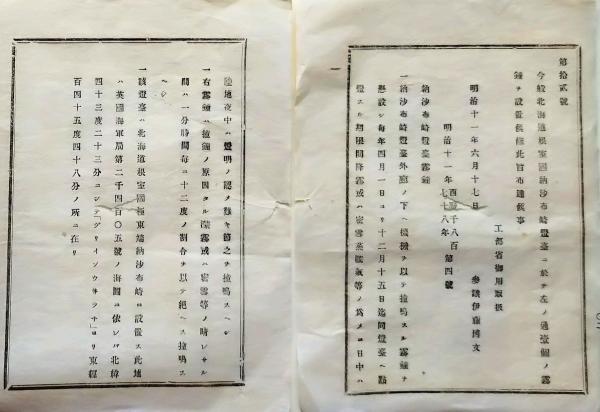 第拾貳號
今般北海道根室國納沙布崎燈臺ニ於テ左ノ通壹個ノ霧
鐘ヲ設置候條此旨布達候事
工部省御用取扱
明治十一年六月十七日 參議伊藤博文
明治十一年 西暦千八百七十八年 第四號
納沙布崎燈臺霧鐘
一納沙布崎燈臺外廊ノ下ヘ機械ヲ以テ撞鳴スル霧鐘ヲ
懸設シ每年四月一日ヨリ十二月十五日迄同燈臺ヘ點
燈スル期限間降霧或ハ密雪蒸騰氣等ノ爲メニ日中ハ
陸地夜中ハ燈明ノ認メ難キ節之ヲ撞鳴スヘシ
一右霧鐘ハ撞鳴ノ原因タル濛霧或ハ密雪等ノ晴レサル
間ハ一分時間每ニ十二度ノ割合ヲ以テ絕ヘス撞鳴ス
ヘシ
一該燈臺ハ北海道根室國極東端納沙布崎ニ設置ス此地
ハ英國海軍局第二千四百〇五號ノ海圖ニ依レハ北緯
四十三度二十三分ニシテ「グリインウ井ツチ」ヨリ東經
百四十五度四十八分ノ所ニ在リ